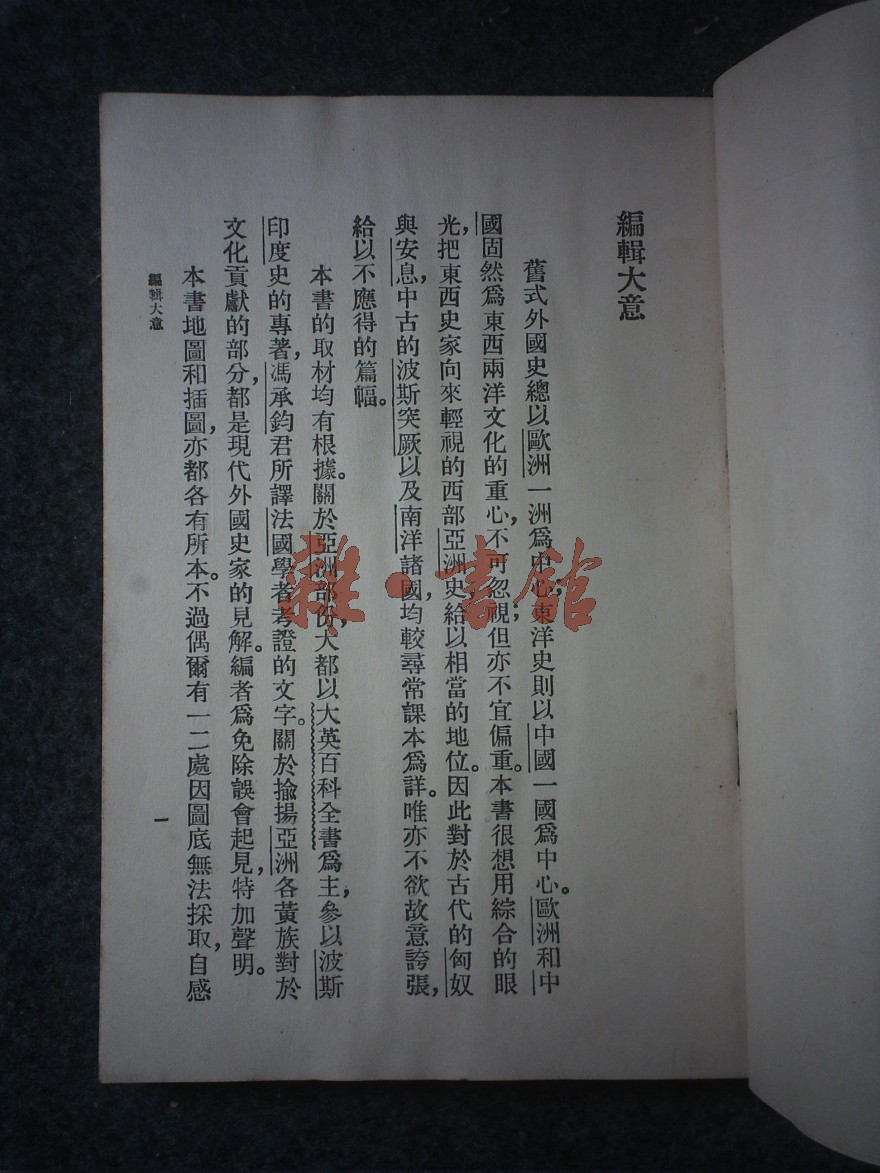 編輯大意
舊式外國史總以歐洲一洲爲中心;東洋史則以中國一國爲中心。歐洲和中
國固然爲東西兩洋文化的重心,不可忽視;但亦不宜偏重。本書很想用綜合的眼
光,把東西史家向來輕視的西部亞洲史給以相當的地位。因此對於古代的匈奴
與安息,中古的波斯突厥以及南洋諸國,均較尋常課本爲詳。唯亦不欲故意誇張,
給以不應得的篇幅。
本書的取材均有根據。關於亞洲部份,大都以大英百科全書爲主,參以波斯
印度史的專著,馮承鈞君所譯法國學者考證的文字。關於揄揚亞洲各黃族對於
文化貢獻的部分,都是現代外國史家的見解。編者爲免除誤會起見,特加聲明。
本書地圖和插圖,亦都各有所本。不過偶爾有一二處因圖底無法採取,自感
編輯大意
一
雜·書館